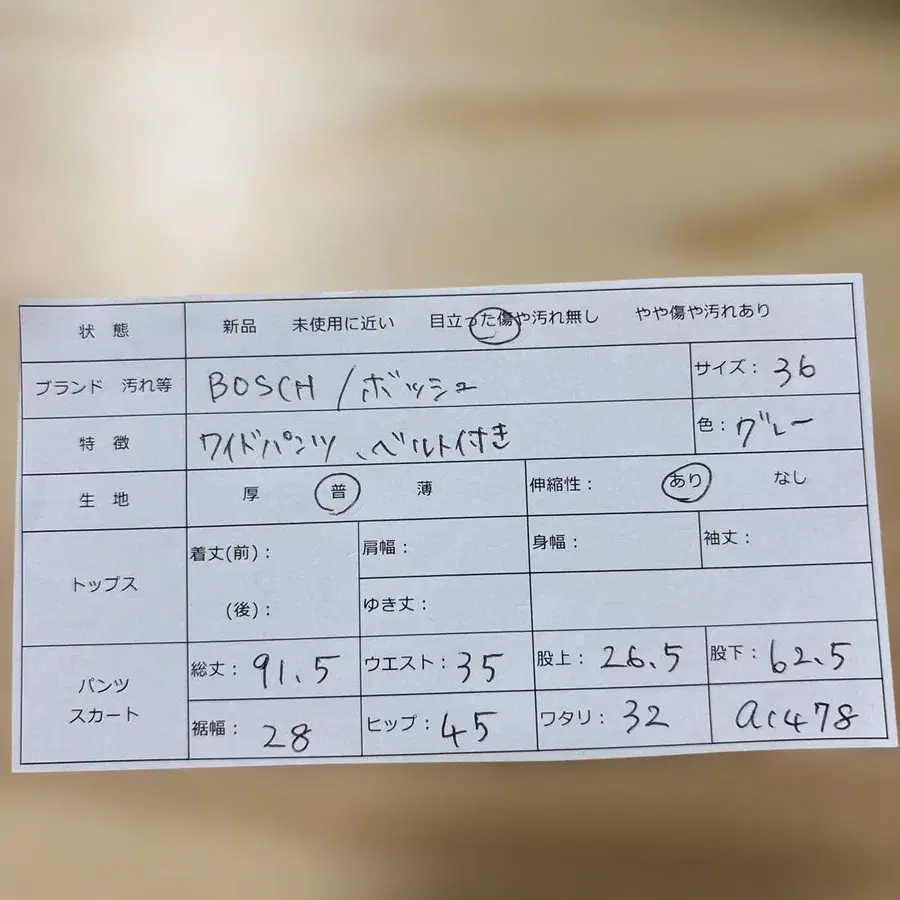 状 態 新品 未使用に近い 目立った傷や汚れ無し やや傷や汚れあり
ブランド 汚れ等 BOSCH/ボッシュ サイズ: 36
特 徴 ワイドパンツ、ベルト付き 色: グレー
生 地 厚 普 薄 伸縮性: あり なし
トップス 着丈(前): 肩幅: 身幅: 袖丈:
(後): ゆき丈:
パンツ スカート 総丈: 91.5 ウエスト: 35 股上: 26.5 股下: 62.5
裾幅: 28 ヒップ: 45 ワタリ: 32 ac478